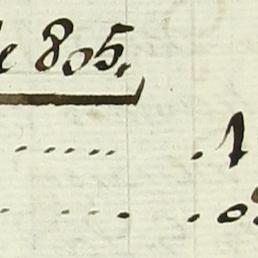 e 805.
..... . 1
. ... . 0